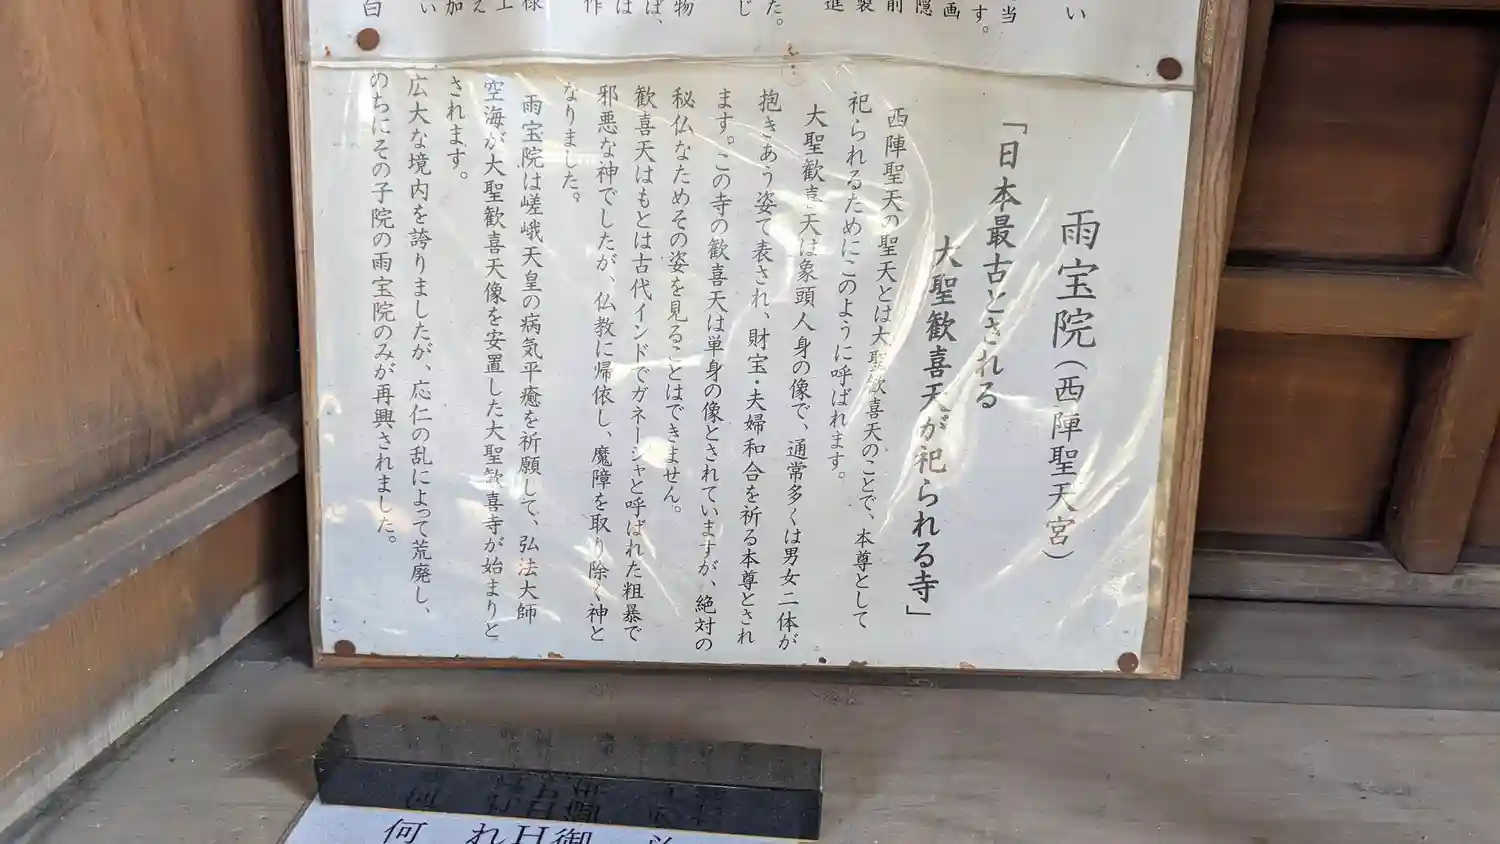 雨宝院（西陣聖天宮）
「日本最古とされる
大聖歓喜天が祀られる寺」
西陣聖天の聖天とは大聖歓喜天のことで、本尊として
祀られるためにこのように呼ばれます。
大聖歓喜天は象頭人身の像で、通常多くは男女二体が
抱きあう姿で表され、財宝・夫婦和合を祈る本尊とされ
ます。この寺の歓喜天は単身の像とされていますが、絶対の
秘仏なためその姿を見ることはできません。
歓喜天はもとは古代インドでガネーシャと呼ばれた粗暴で
邪悪な神でしたが、仏教に帰依し、魔障を取り除く神と
なりました。
雨宝院は嵯峨天皇の病気平癒を祈願して、弘法大師
空海が大聖歓喜天像を安置した大聖歓喜寺が始まりと
されます。
広大な境内を誇りましたが、応仁の乱によって荒廃し、
のちにその子院の雨宝院のみが再興されました。